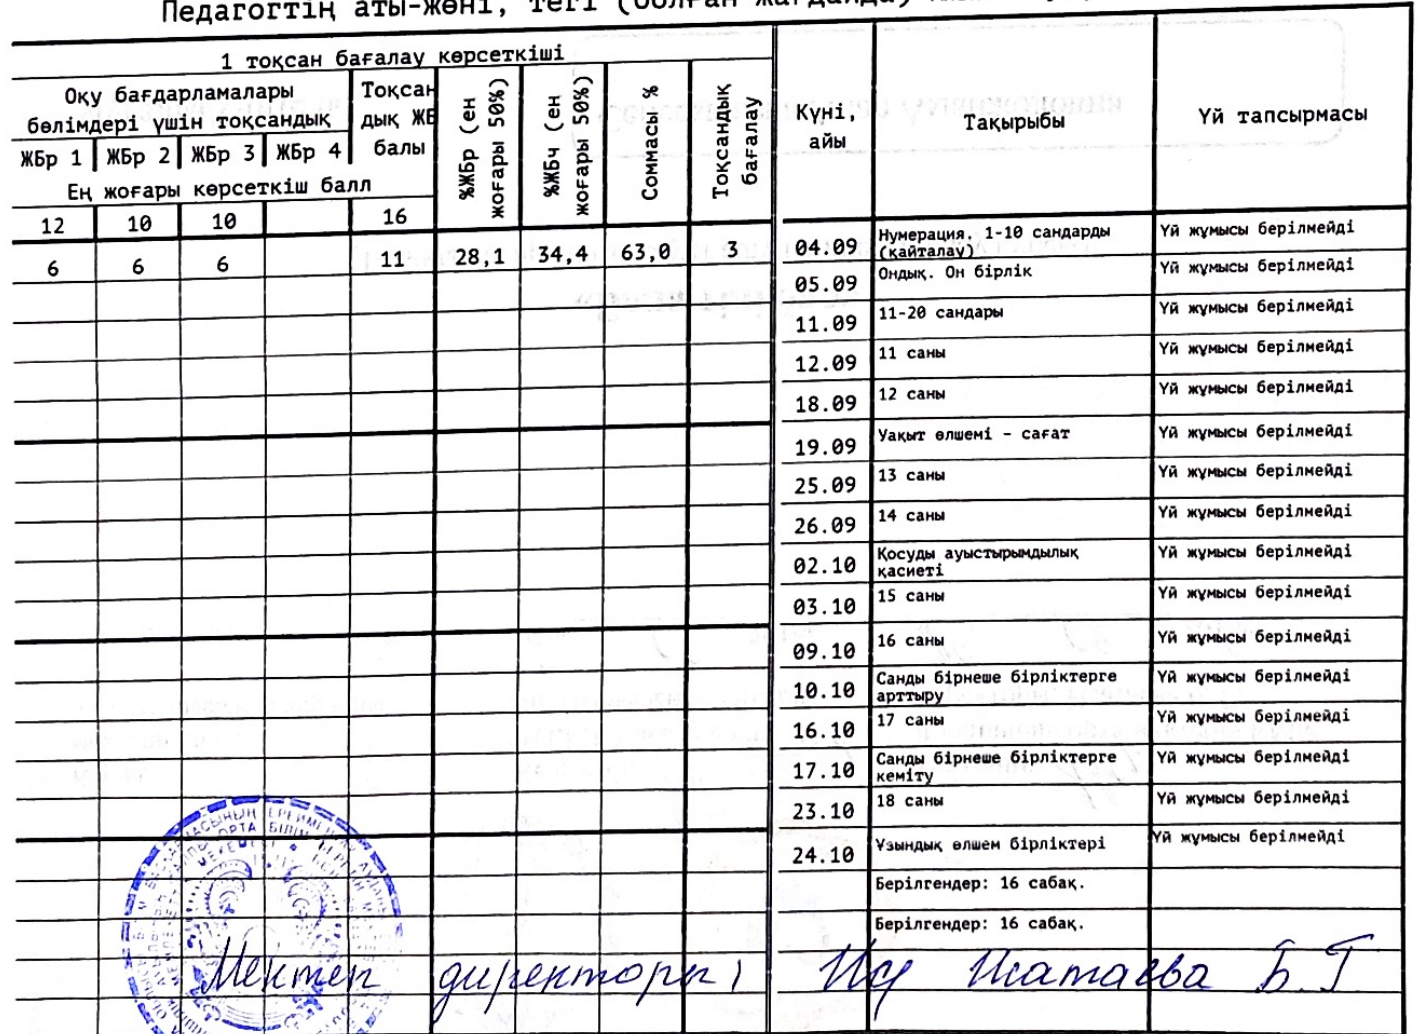 Педагогтің аты-жөні, тегі (болған жағдайда)
1 тоқсан бағалау көрсеткіші
Оқу бағдарламалары
бөлімдері үшін тоқсандық
Тоқсан
дық ЖБ
балы
ЖБр 1 ЖБр 2 ЖБр 3 ЖБр 4
Ең жоғары көрсеткіш балл
%ЖБр (ен
жоғары 50%)
%ЖБч (ен
жоғары 50%)
Соммасы %
Тоқсандық
бағалау
Күні,
айы
Тақырыбы
Үй тапсырмасы
12 10 10 16
6 6 6 11 28,1 34,4 63,0 3
04.09 Нумерация. 1-10 сандарды
(қайталау)
Үй жұмысы берілмейді
05.09 Ондық. Он бірлік Үй жұмысы берілмейді
11.09 11-20 сандары Үй жұмысы берілмейді
12.09 11 саны Үй жұмысы берілмейді
18.09 12 саны Үй жұмысы берілмейді
19.09 Уақыт өлшемі - сағат Үй жұмысы берілмейді
25.09 13 саны Үй жұмысы берілмейді
26.09 14 саны Үй жұмысы берілмейді
02.10 Қосуды ауыстырымдылық
қасиеті
Үй жұмысы берілмейді
03.10 15 саны Үй жұмысы берілмейді
09.10 16 саны Үй жұмысы берілмейді
10.10 Санды бірнеше бірліктерге
арттыру
Үй жұмысы берілмейді
16.10 17 саны Үй жұмысы берілмейді
17.10 Санды бірнеше бірліктерге
кеміту
Үй жұмысы берілмейді
23.10 18 саны Үй жұмысы берілмейді
24.10 Ұзындық өлшем бірліктері Үй жұмысы берілмейді
Берілгендер: 16 сабақ.
Берілгендер: 16 сабақ.
Мектеп директоры: Жатаева Б.Т